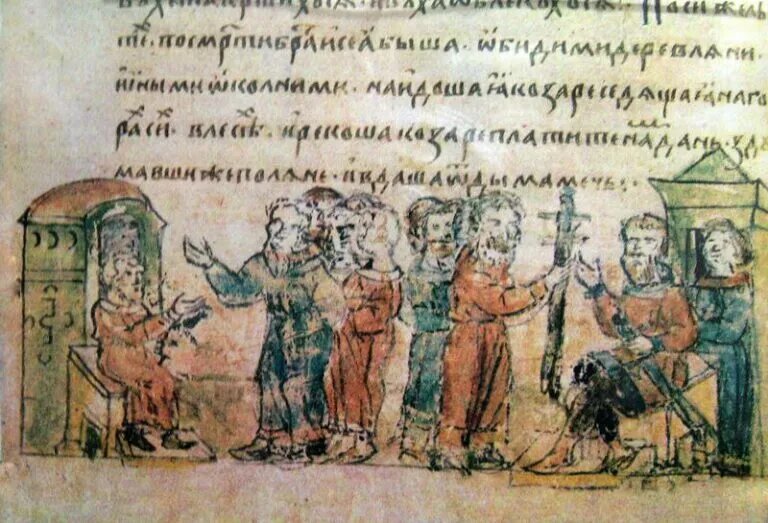 По сиⷯ же лѣ
тѣ. по смр҃ти браⷮи сеѧ быша. ѡбидими деревлѧни.
иными ѡколними. наидоша ѧ козаре седѧщаѧ на го
раⷯ сиⷯ. в лесѣ. и рекоша козаре платите наⷨ дань. здꙋ
мавши же полѧне. и вдаша ѿ дыма мечь: